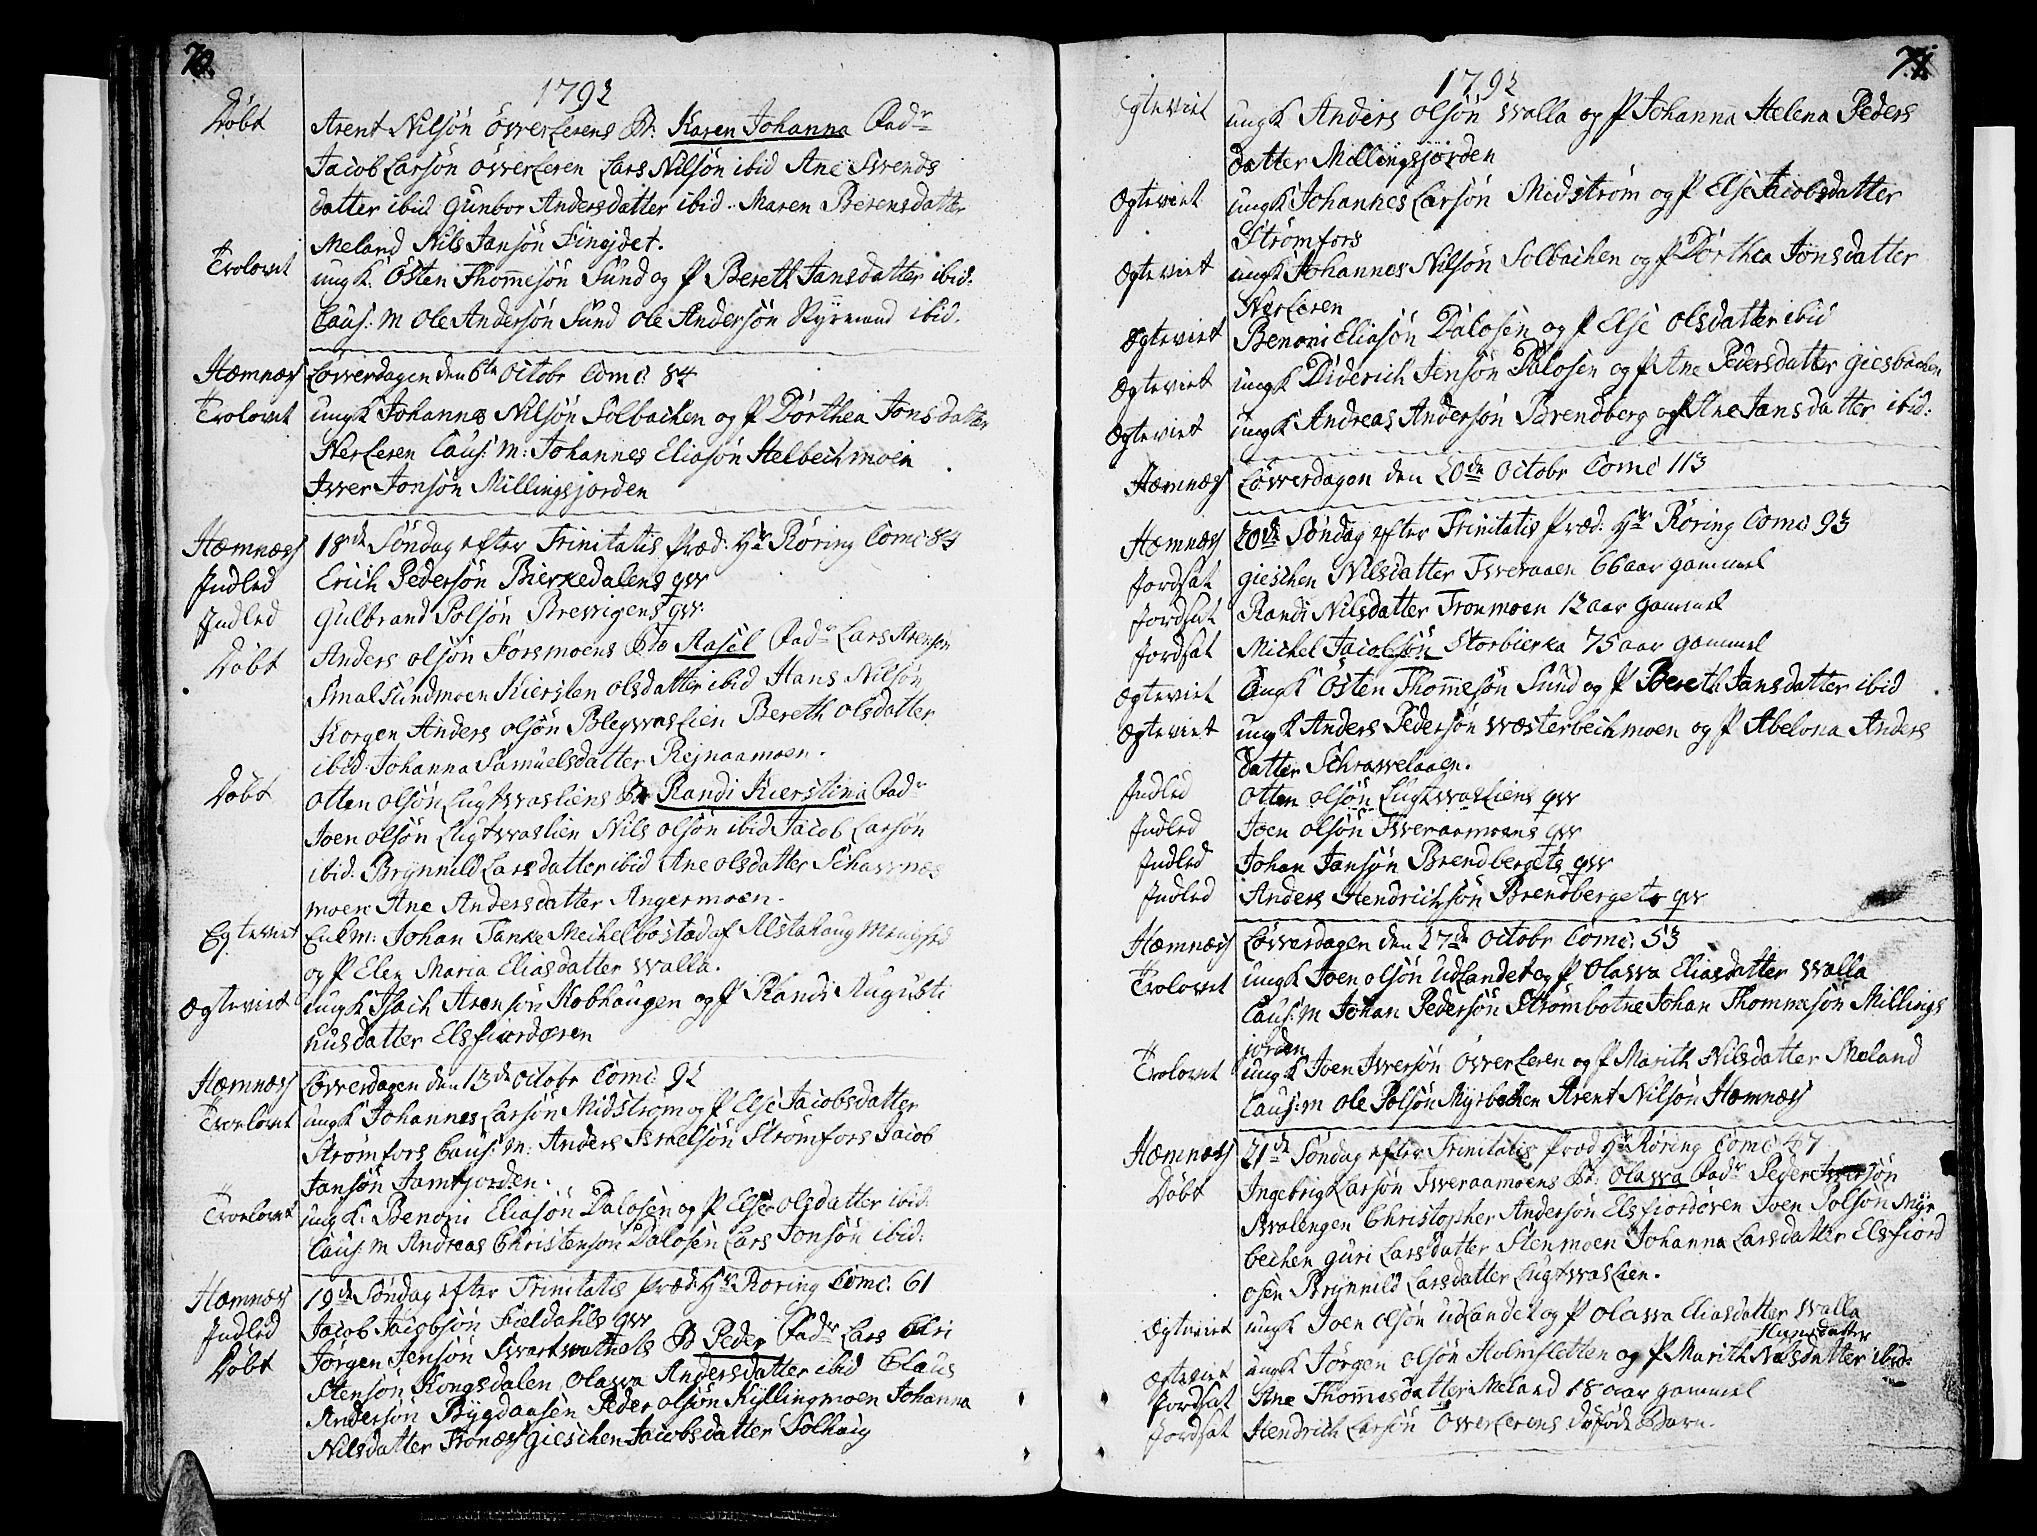 70.
1792
Döbt Arent Nilsön Öwerlerens B: Karen Johanna Fadr
Jacob Larsön Öwerleren Lars Nilsön ibid Ane Svends
datter ibid Gunbor Andersdatter ibid. Maren Berensdatter
Meland Nils Jansön Finejdet.
Trolovet ungk: Östen Thommesön Sund og P Bereth Jansdatter ibid:
Caus: m Ole Andersön Sund Ole Andersön Styrmand ibid.
Hæmnæs Löwerdagen den 6te Octobr Comc: 84
Trolovet ungk Johannes Nilsön Solbachen og P Dorthea Jonsdatter
Nerleren Caus: m: Johannes Eliasön Helbechmoen
Iwer Jonsön Millingsjorden
Hæmnæs 18de Söndag efter Trinitatis Præd: Hr Röring Comc: 84
Indled Erich Pedersön Bierkedalens qvr
Indled Gulbrand Polsön Brewigens qvr.
Döbt Anders Olsön Forsmoens B. Aasel Fadr Lars Arensön
Smalsundmoen Kiersten Olsdatter ibid Hans Nilsön
Korgen Anders Olsön Blegwaslien Bereth Olsdatter
ibid. Johanna Samuelsdatter Rejnaamoen.
Döbt Otten Olsön Lugtwasliens B. Randi Kierstina Fadr
Joen Olsön Lugtwaslien Nils Olsön ibid Jacob Larsön
ibid. Brynnild Larsdatter ibid Ane Olsdatter Schawnæs
moen Ane Andersdatter Angermoen.
Egteviet Enkm: Johan Tanke Mechelbostad af Alstahaug Menighed
og P Elen Maria Eliasdatter Walla.
Ægteviet ungk Isach Arensön Kobhaugen og P Randi Augusti
nusdatter Elsfiordören
Hæmnæs Löwerdagen den 13de Octobr Comc: 92
Trolovet ungk Johannes Larsön Midström og P Else Jacobsdatter
Strömfors Caus: m: Anders Israelsön Strömfors Jacob
Jansön Jamtjorden.
Trolovet ungk: Benoni Eliasön Dalosen og P Else Olsdatter ibid:
Caus: m Andreas Christensön Dalosen Lars Jonsön ibid:
Hæmnæs 19de Söndag efter Trinitatis Præd: Hr Röring Comc: 61
Indled Jacob Jacobsön Fieldahls qvr
Döbt Jörgen Jensön Swartwathels B Peder Fadr Lars
Stensön Kongsdalen Olawa Andersdatter ibid Claus
Andersön Bygdaasen Peder Olsön Kyllingmoen Johanna
Nilsdatter Fronæs Gieschen Jacobsdatter Solhaug
71.
1792
Egteviet ungk Anders Olsön Walla og P Johanna Helena Peders
datter Millingsjorden
Ægteviet ungk Johannes Larsön Midström og P Else Jacobsdatter
Strömfors
Ægteviet ungk Johannes Nilsön Solbachen og P Dorthea Jonsdatter
Nerleren
Ægteviet Benoni Eliasön Dalosen og P Else Olsdatter ibid
Ægteviet ungk Diderich Jensön Dalosen og P Ane Pedersdatter Giesbachen
Ægteviet ungk Andreas Andersön Brendberg og P Ane Jansdatter ibid:
Hæmnæs Löwerdagen den 20de Octobr Comc: 113
Hæmnæs 20de Söndag efter Trinitatis Præd: Hr Röring Comc: 93
Jordsat Gieschen Nilsdatter Tweraaen 66 aar gammel
Jordsat Randi Nilsdatter Tronmoen 12 aar gammel
Jordsat Michel Jacobsön Storbierka 75 aar gammel
Ægteviet Ungk Östen Thommesön Sund og P Bereth Jansdatter ibid
Ægteviet ungk Anders Pedersön Wæsterbechmoen og P Abelona Anders
datter Schrawelaaen.
Indled Otten Olsön Lugtwasliens qvr
Indled Joen Olsön Tweraamoens qvr
Indled Johan Jansön Brendbergets qvr
Indled Anders Hendrichsön Brendbergets qvr
Hæmnæs Löwerdagen den 27de Octobr Comc: 53
Trolovet ungk Joen Olsön Udlandet og P Olawa Eliasdatter Walla
Caus: m Johan Pedersön Strömbotne Johan Thommesön Millings
jorden
Trolovet ungk Joen Iwersön Öwerleren og P Marith Nilsdatter Meland
Caus: m Ole Polsön Myrbechen Arent Nilsön Hæmnæs
Hæmnæs 21de Söndag efter Trinitatis Præd Hr Röring Comc: 47
Döbt Ingebrigt Larsön Tweraamoens B: Olawa Fadr Peder Iwersön
Swalengen Christopher Andersön Elsfiordören Joen Polsön Myr
bechen Guri Larsdatter Stenmoen Johanna Larsdatter Elsfiord
osen Brynnild Larsdatter Lugtwaslien.
Ægteviet ungk Joen Olsön Udlandet og P Olawa Eliasdatter Walla
Hansdatter
Ægteviet ungk Jörgen Olsön Holmsletten og P Marith Nilsdatter ibid:
Jordsat Ane Thommesdatter Meland 18 aar gammel
Jordsat Hendrich Larsön Öwerlerens döföde Barn.